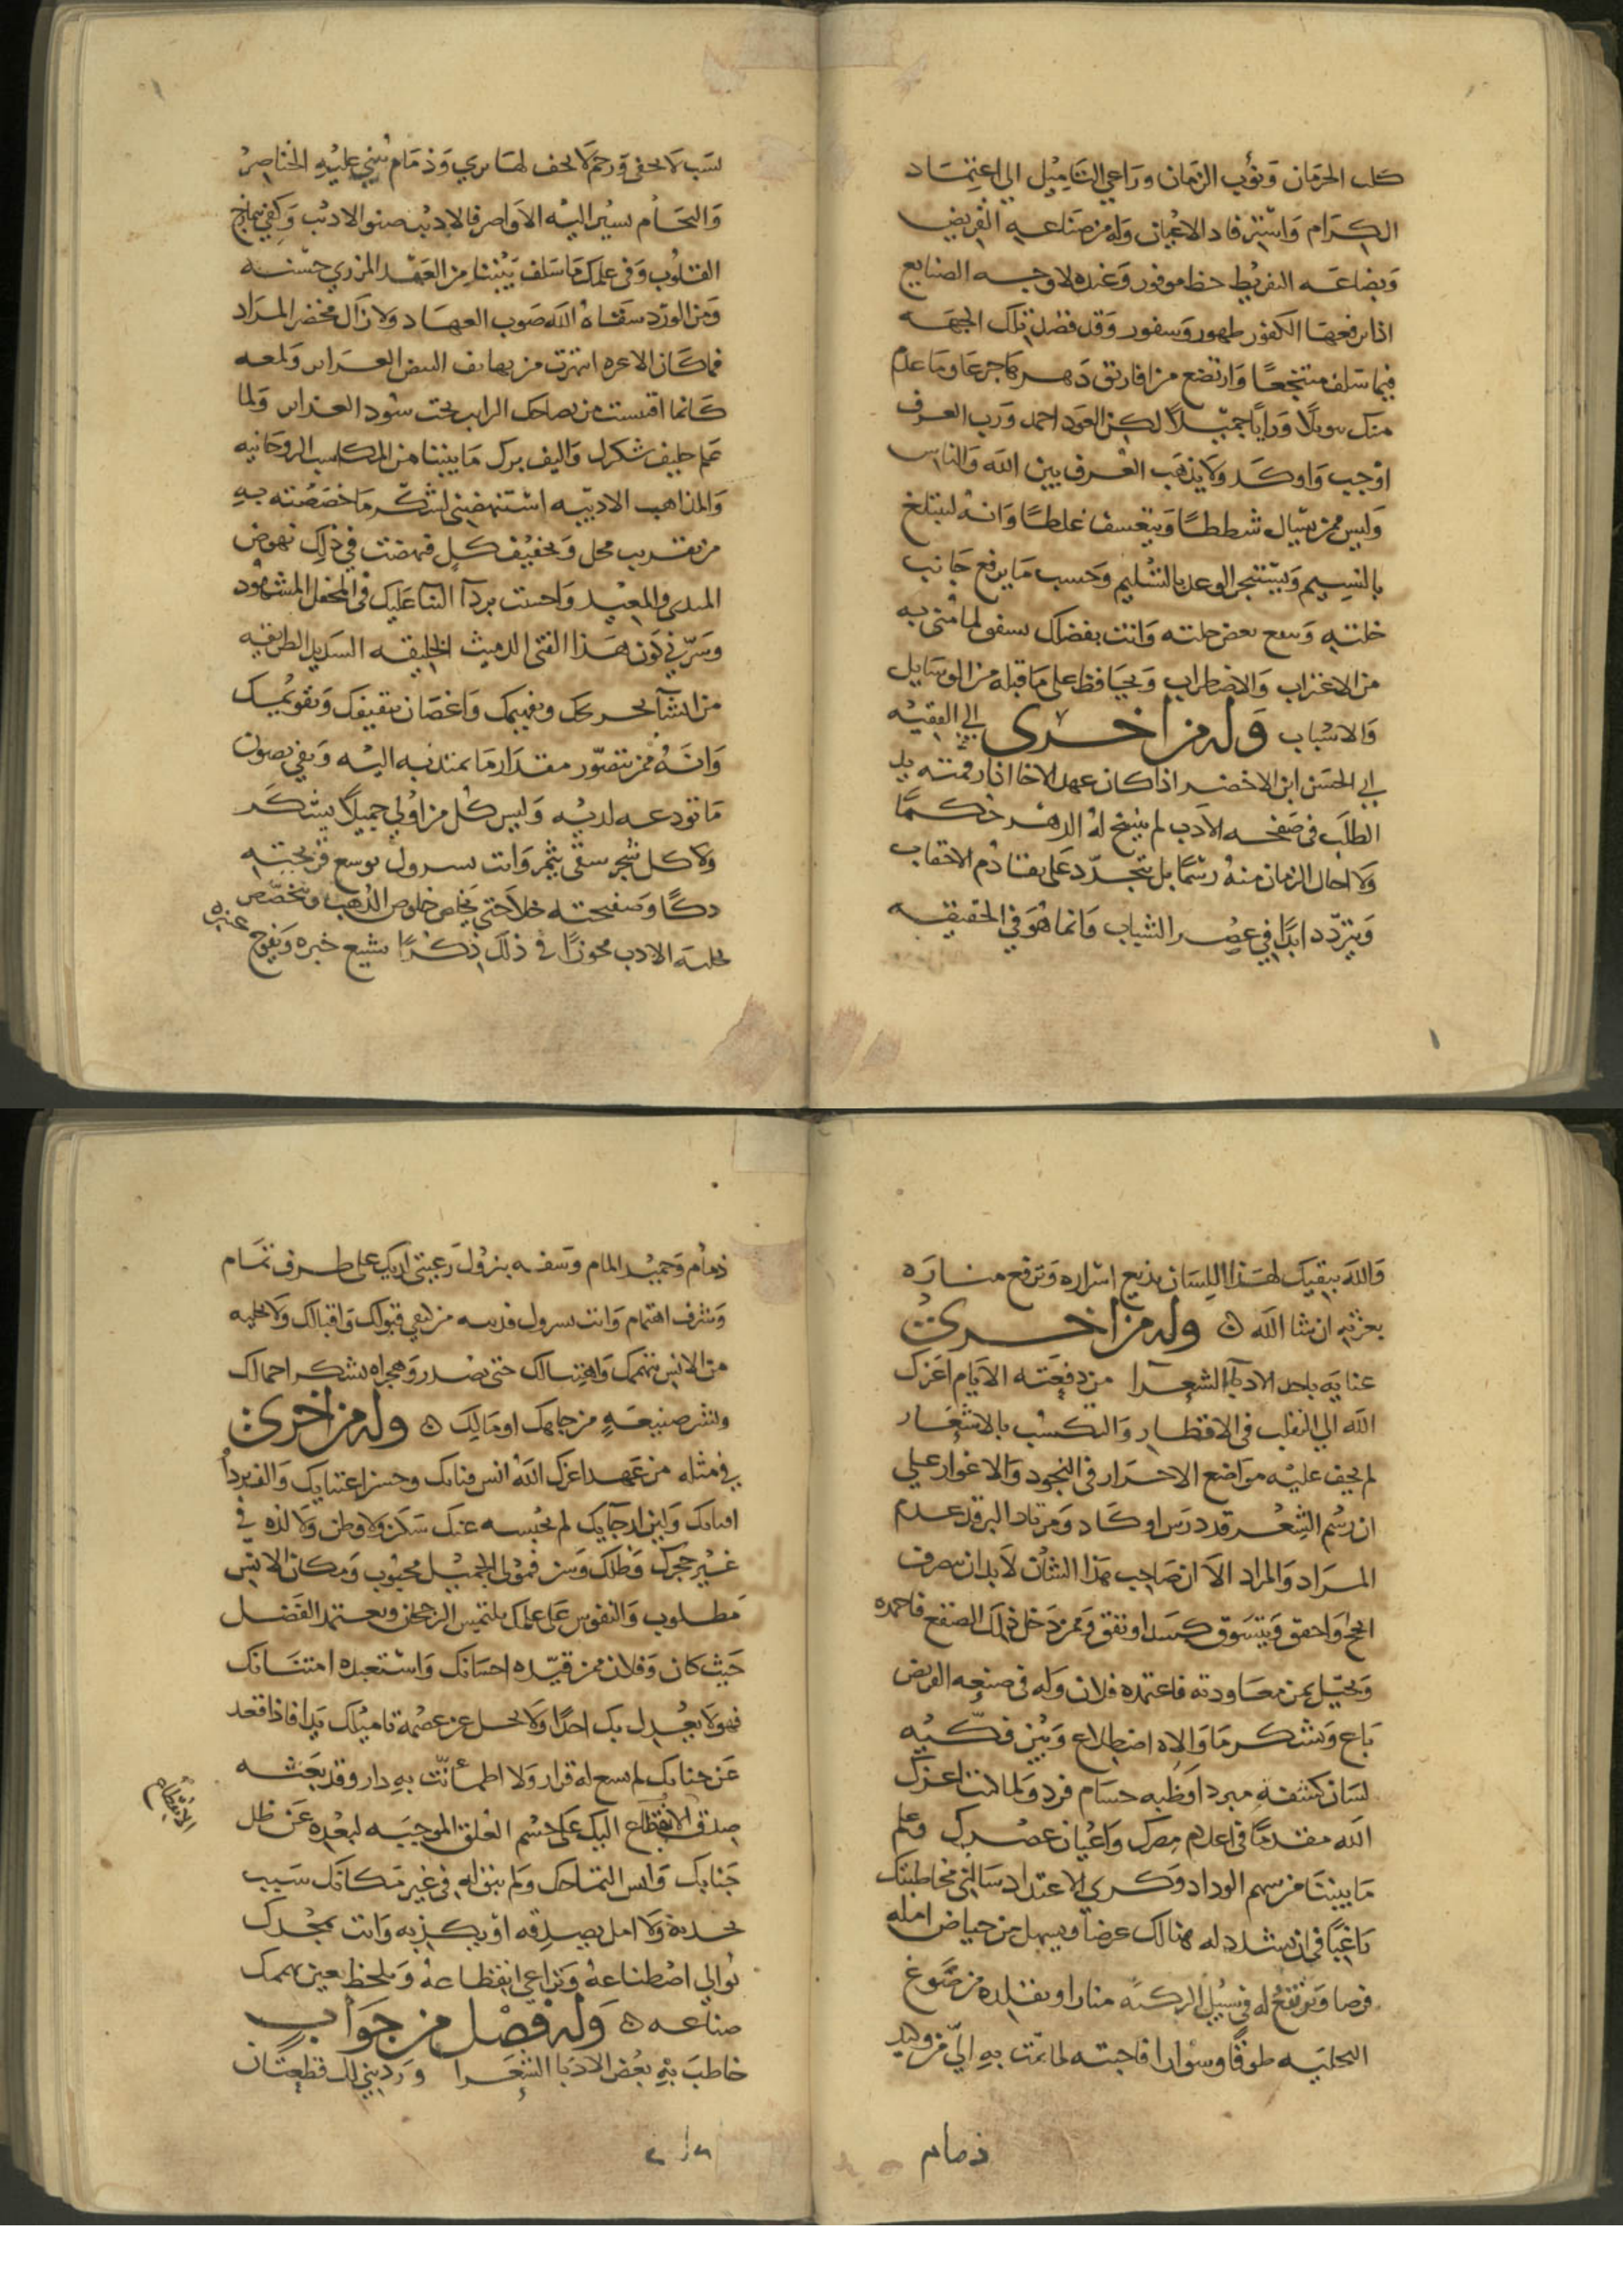 كلب الحرمان ونوب الزمان وراعي التاميل الى اعتماد
الكرام واسترفاد الاعيان وله من صناعه القريض
وبضاعه التقريظ حظ موفور وعنده لاوجه الصنايع
اذا برقعها الكفور ظهور وسفور وقد فضل تلك الجهه
فيما سلف منتجعا وارتضع من افاويق دهرها جرعا وما علم
منك ورايا جميلا لكن العود احمد ورب العرف
اوجب واوكد ولا يذهب العرف بين الله والناس
وليس ممن يسال شططا ويتعسف غلطا وانه ليتبلغ
بالنسيم ويستنجز الوعد بالتسليم وحسب ما يرفع جانب
خلته بعض حلته وانت بفضلك لما متى به
من الاغتراب والاضطراب ويحافظ على ما قبله من الوسايل
والاسباب وله من اخرى الى الفقيه
ابي الحسن ابن الاخضر اذا كان عهد الاخا اذا رقمته يد
الطلب في صفحه الادب لم ينسخ له الدهر حكما
ولا احال الزمان منه رسما بل يتجدد على تقادم الاحقاب
ويتردد ابدا في عصر الشباب وانما هو في الحقيقه
نسب لا يخفى ورحم لا يجف لها ثري وذمام تثني عليه الخناصر
والتحام تسير اليه الاواصر فالاديب صنو الاديب وكفى بتمازج
القلوب وفي علمك ما سلف بيننا من العهد المزري حسنه
ومن الورد سقاه الله صوب العهاد ولا زال مخضر المراد
فما كان الا غره البيض العراب ولمعه
كانما اقتبست من تحت سود الغداير ولما
علم حليف شكرك واليف برك ما بيننا من المكاسب الروحانيه
والمذاهب الادبيه استنهضني لشكر ما خصصته به
من تقريب محل وتخفيف كل فنهضت في ذلك نهوض
المبدي والمعيد واحسنت الثنا عليك في المحفل المشهود
وسرني كون هذا الفتى الدميث الخليقه السديد الطريقه
من انشا وتفهيمك واغصان تثقيفك وتقويمك
وانه ممن يتصور مقدار ما تمتد به اليه ويفي بصون
ما تودعه لديه وليس كل من اولي جميلا يشكر
ولا كل شجر سقى يثمر وانت توسع قريحته
ذكا وصفيحته جلا حتى يخلص خلوص الذهب ويتخصص
بحلية الادب محوزا في ذلك ذكرا يشيع خبره ويفوح
عنبره
والله يبقيك لهذا اللسان تذيع اسراره وترفع مناره
بعزته ان شا الله وله من اخرى
عنايه باحد الادبا الشعرا من دفعته الايام اعزك
الله الي التقلب في الاقطار والتكسب بالاشعار
لم يخف عليه مواضع الاحرار في النجود والاغوار على
ان رسم الشعر قد درس او كاد ومرتاد البر قد عدم
المراد والمراد الا ان صاحب هذا الشان لا بد ان
وينسوق كسد او نفق وممن دخل ذلك الصقع فاحمده
معاودته فاعتمده فلان وله في صنعه القريض
باع وبشكر ما والاه اضطلاع وبين فكيه
لسان كشفة مبرد او ظبه حسام فرد ولما كنت اعزك
الله مقدما في اعلام مصرك واعيان عصرك وعلم
ما بيننا من سهم الوداد وكرى الاعتداد سالني مخاطبتك
راغبا في ان تسدد له هنالك غرضا من حياض امله
فرصا وترفع له في سبيل البر كنه منارا او تقلده من مصوغ
التحليه طوقا وسوارا فاجبته لما تمت به الي من وكيد
ذمام
ذمام وحميد المام وسفه بنزول رغبتي اليك على طرف ثمام
وشرف اهتمام وانت قبولك واقبالك ولا تخليه
من الانس بتهممك واهتبالك حتى يصدر وهجيراه شكر اجمالك
ونشر صنيعه من جاهك او مالك وله من اخرى
في مثله من عهد اعزك الله انس فنايك وحسن اعتنايك والف برد
افيايك ولين ارجايك لم يحبسه عنك سكن ولا وطن ولا لذه في
غير حجرك وظلك وسن فمولى الجميل محبوب ومكان الانس
مطلوب والنفوس على علمك تلتمس الرجحان وتعتمد الفضل
حيث كان وفلان ممن قيده احسانك واستعبده امتنانك
فهو لا يعدل بك احدا ولا يحل عن عصمة تاميلك يدا فاذا قعد
عن جنابك لم يسع له قرار ولا اطمانت به دار وقد بعثه
صدق الانقطاع اليك على حسم العلق الموجبه لبعده عن ظل
جنابك ولم يبق له في غير مكانك سبب
يحدبه ولا امل يصدقه او يكذبه وانت بمجدك
توالي اصطناعه وتراعي انقطاعه وتلحظ بعين تهممك
ضياعه وله فصل من جواب
خاطب به بعض الادبا الشعرا وردني لك قطعتان